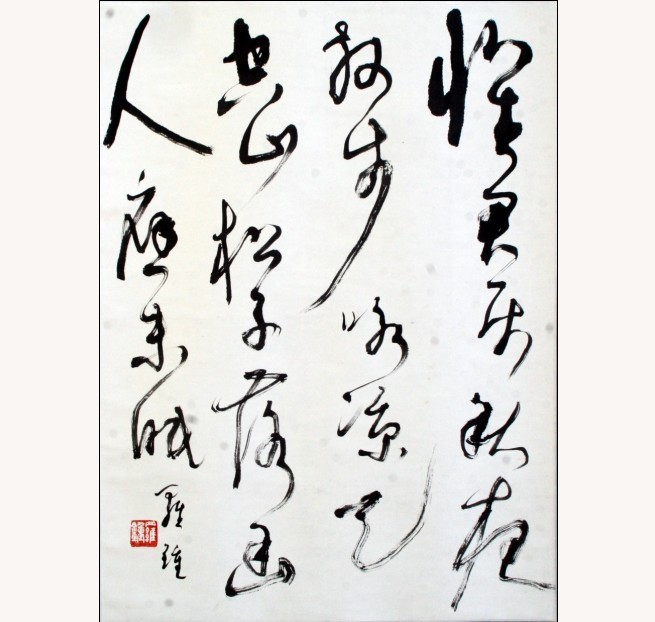 懷君属秋夜
散步咏凉天
空山松子落幽
人應未眠